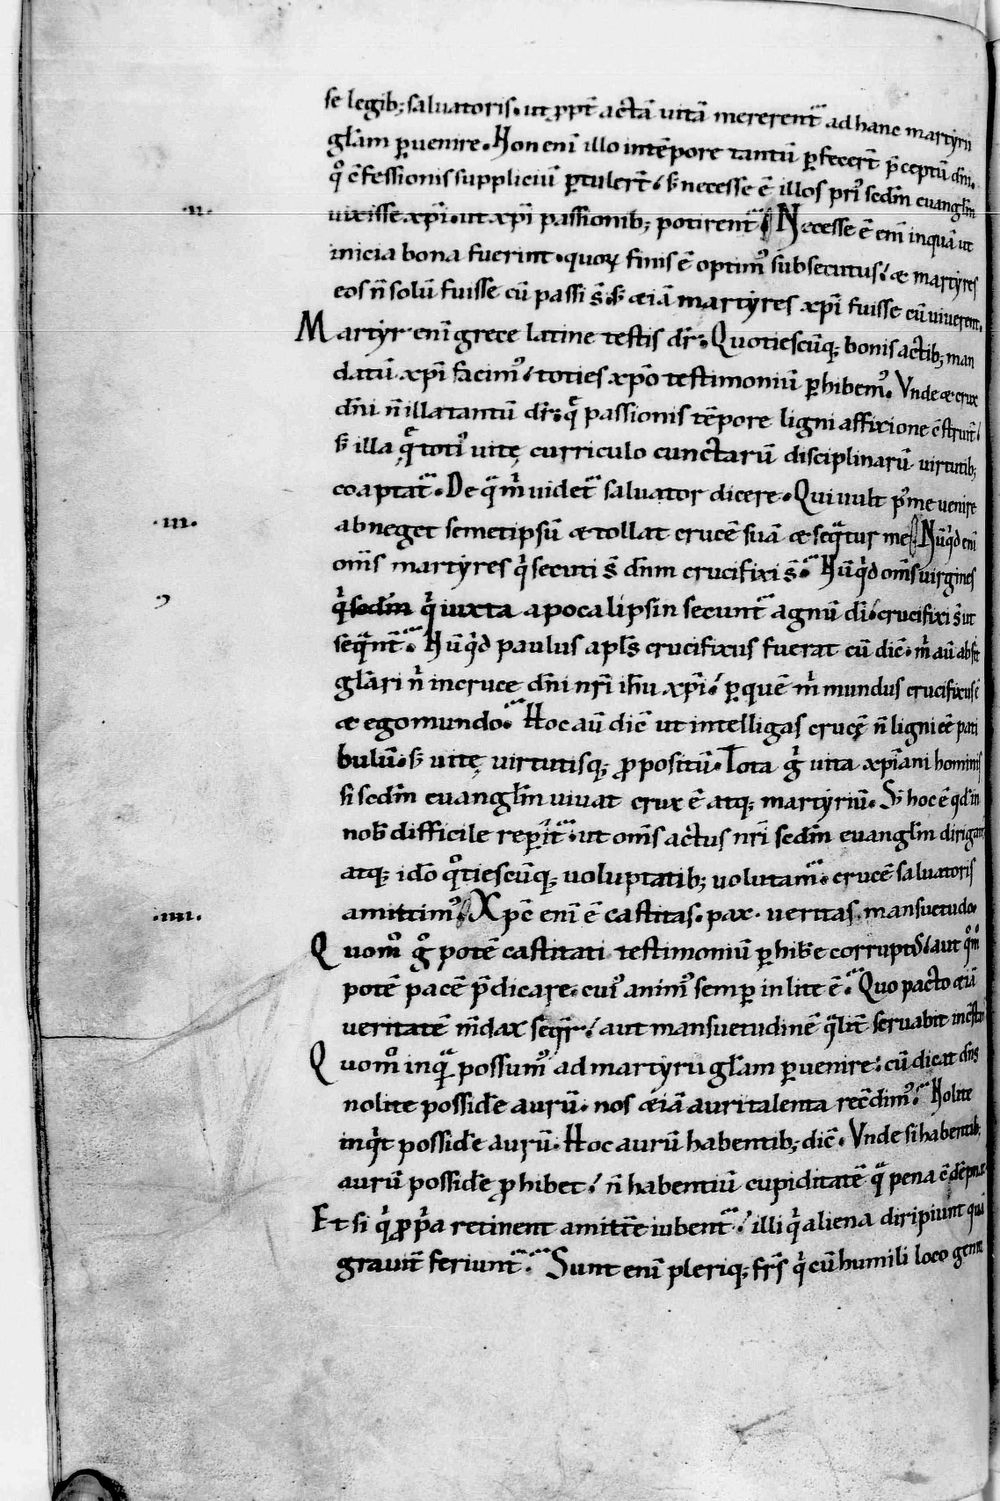 se legib; saluatoris. ut ꝓpt̄ actā uitā mererent̄ ad hanc martyrii
gl̄am ꝑuenire. Non eni illo intēpore tantū ꝑfecert̄ p̄ceptū dn̄i.
qͦ ↄ̄fessionis suppliciū ꝑtulert̄. s; necesse ē illos priꝰ sedm̄ euangl̄m
.ii.
uixisse xp̄i. ut xp̄i passionib; potirent̄. Necesse ē eni inquā ut
inicia bona fuerint. quoꝝ finis ē optimꝰ subsecutus. & martyres
eos n̄ solū fuisse cū passi s̄. s; & iā martyres xp̄i fuisse cū uiuerent.
Martyr eni grece latine testis dr̄. Quotiescūq; bonis actib; man
datū xp̄i facimꝰ. toties xp̄o testimoniū ꝑhibemꝰ. Vnde & crux
dn̄i n̄ illa tantū dr̄. que passionis tēpore ligni affixione ↄ̄struit̄.
s; illa que totiꝰ uitę curriculo cunctarū disciplinarū uirtutib;
coaptat̄. De qua m̄ uidet̄ saluator dicere. Qui uult pꝰ me uenire
.iii.
abneget semetipsū & tollat crucē suā & sequatur me. Nūqͥd eni
om̄s martyres qͥ secuti s̄ dn̄m crucifixi s̄. Nūqͥd om̄s uirgines
qͥ sedm̄ qͥ iuxta apocalipsin secunt̄ agnū di. crucifixi s̄ ut
sequant̄. Nūqͥd paulus apl̄s crucifixus fuerat cū dic̄. m̄ aū absit
gl̄ari n̄ in cruce dn̄i nr̄i ih̄u xp̄i. ꝑ quē m̄ mundus crucifixus ē
& ego mundo. Hoc aū dic̄ ut intelligas crucē n̄ ligni eē pati
bulū. s; uitę uirtutisq; ꝓpositū. Tota gͥ uita xp̄iani hominis
si sedm̄ euangl̄m uiuat crux ē atq; martyriū. S; hoc ē qd̄ in
nob̄ difficile reꝑit̄. ut om̄s actus nr̄i sedm̄ euangl̄m dirigant̄
atq; idō qͦtiescūq; uoluptatib; uolutam̄. crucē saluatoris
.iiii.
amittimꝰ. Xpc̄ eni ē castitas. pax. ueritas. mansuetudo.
Quom̊ gͦ potē castitati testimoniū ꝑhibe corruptꝰ. aut qͦm̊
potē pacē p̄dicare. cuiꝰ animꝰ semꝑ in lite ē. Quo pacto & iā
ueritatē m̄dax sequr̄. aut mansuetudinē qualit̄ seruabit
Quom̊ inqua possumꝰ ad martyrii gl̄am ꝑuenire. cū dicat dn̄s
nolite posside aurū. nos & iā auri talenta recↄ̄dimꝰ. Nolite
inqͥt posside aurū. Hoc aurū habentib; dic̄. Vnde si habentib;
aurū posside ꝓhibet. n̄ habentiū cupiditatē qua pena ē
Et si qͥ ꝓp̄a retinent amitte iubent̄. illi qͥ aliena diripiunt quā
grauit̄ feriunt̄. Sunt eni pleriq; fr̄s qͥ cū humili loco